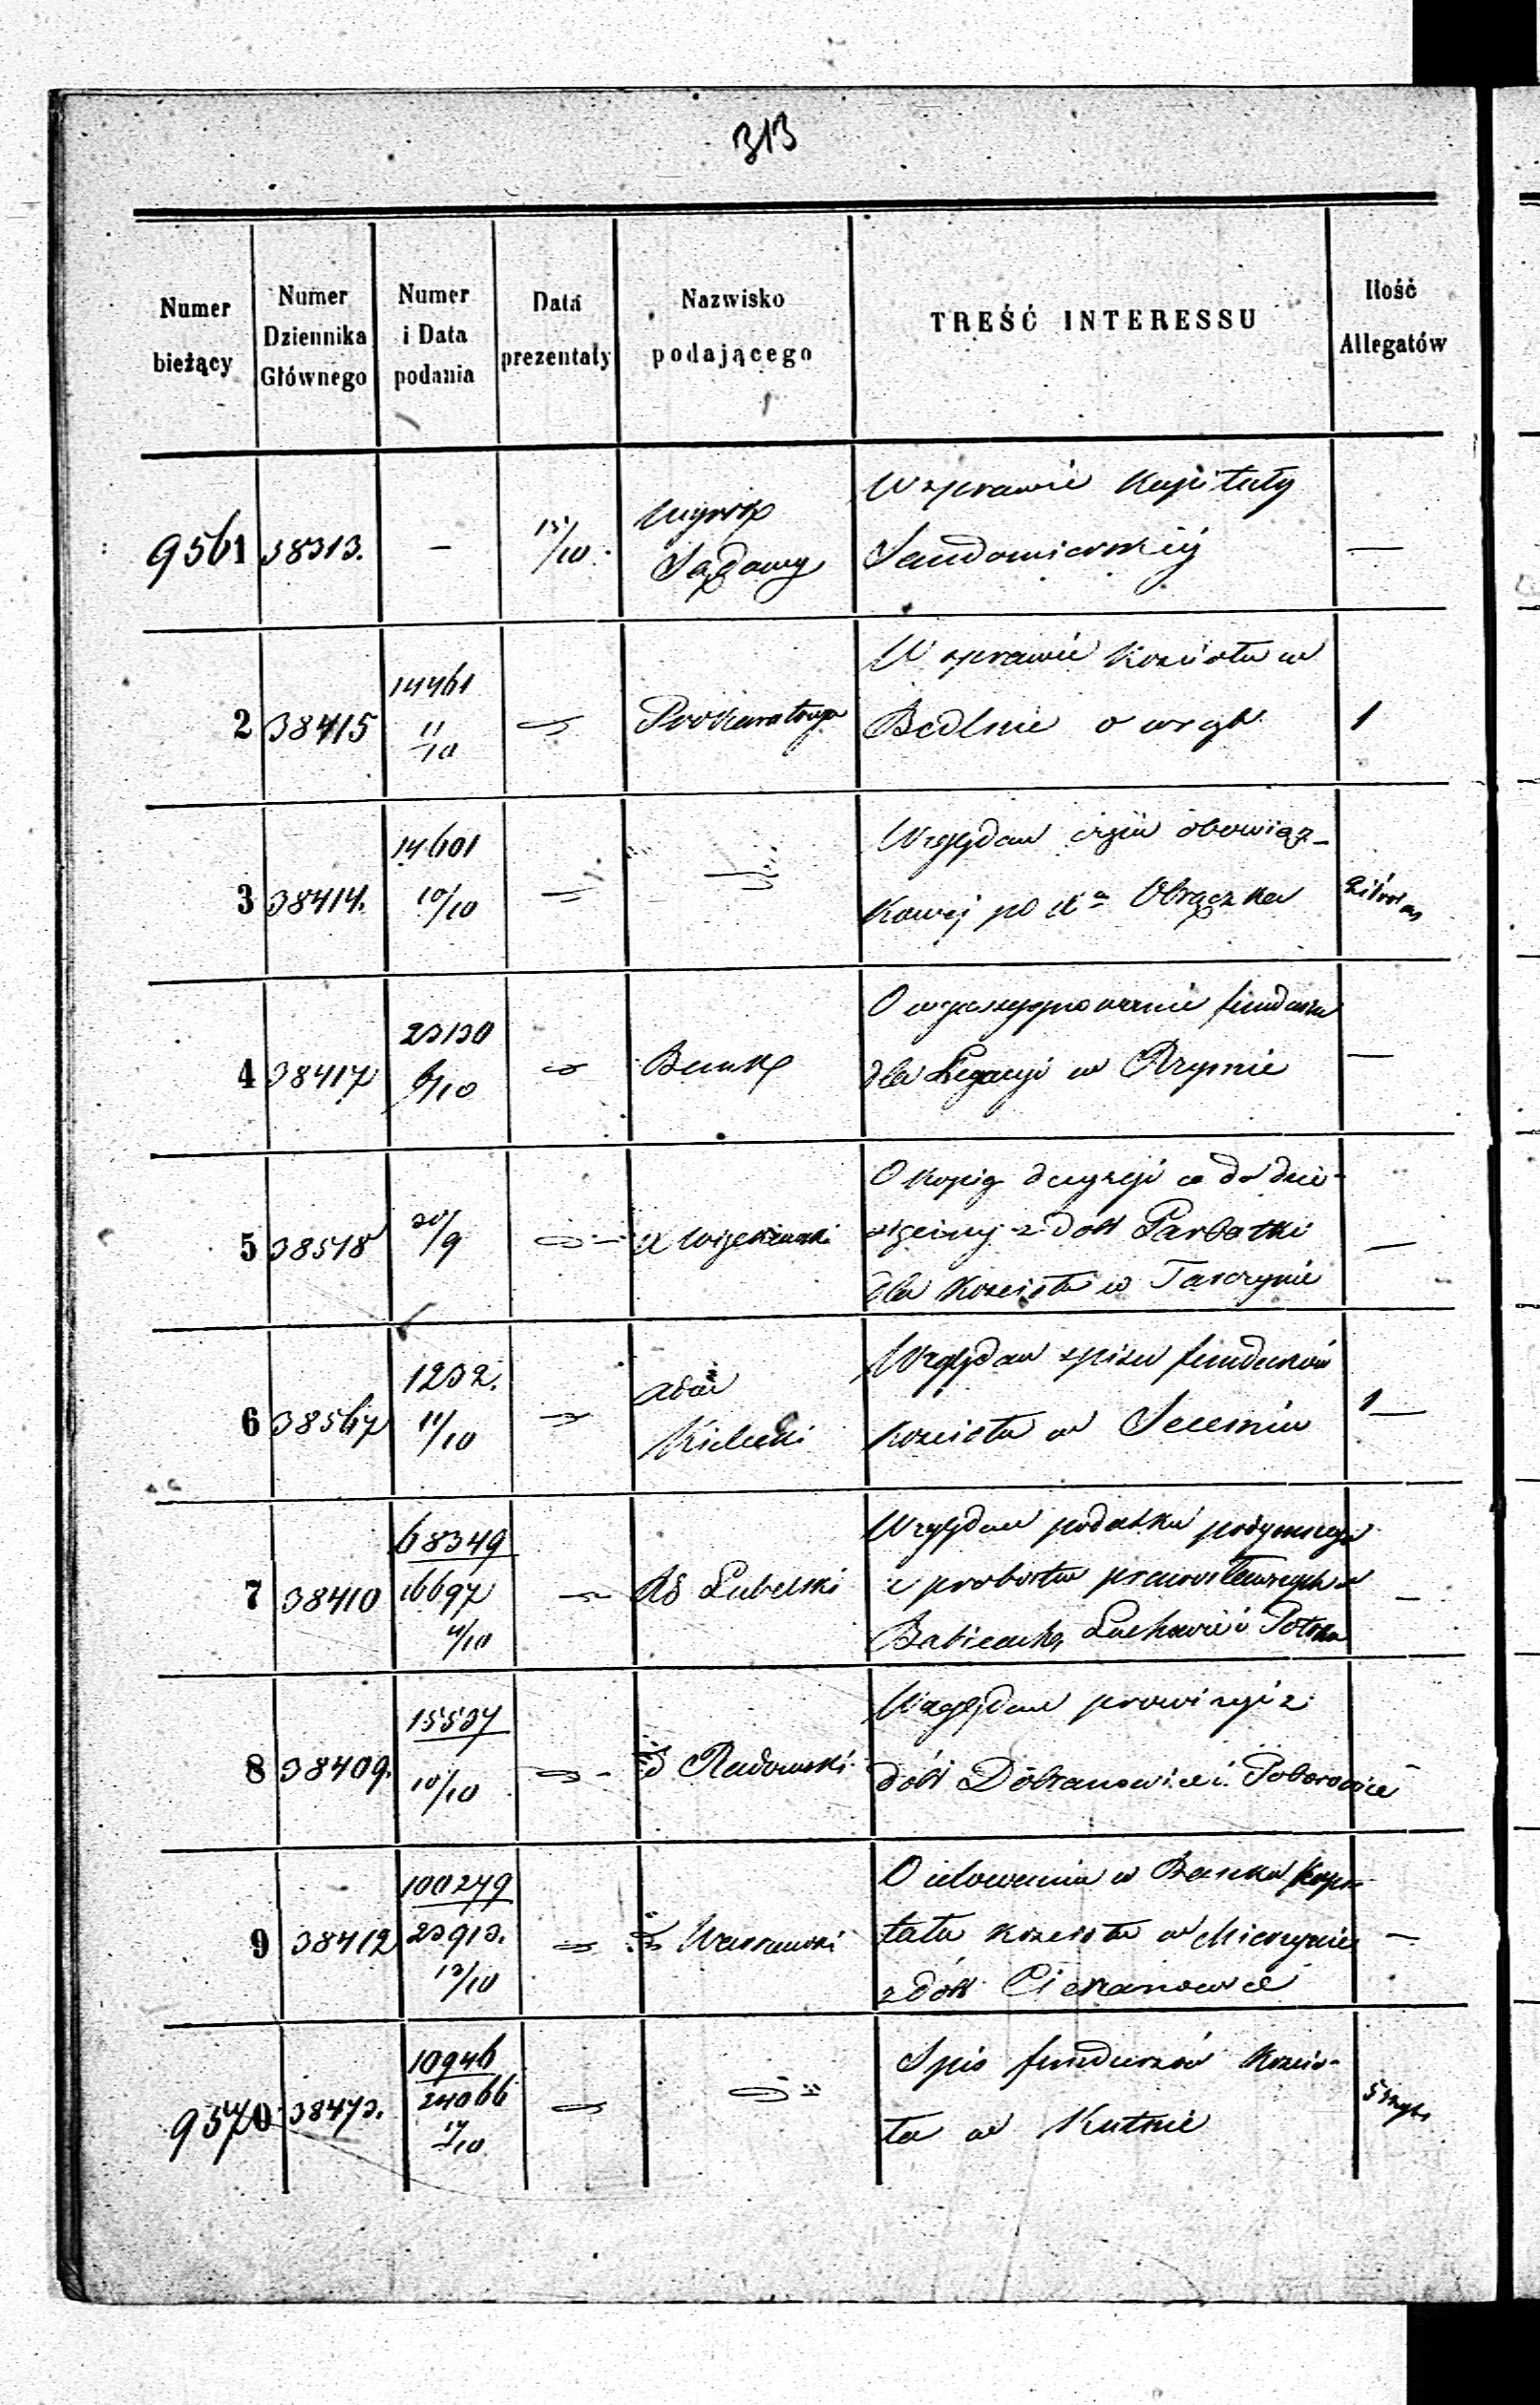 313
Numer bieżący
Numer Dziennika Głównego
Numer i Data podania
Data prezentaty
Nazwisko podającego
TREŚĆ INTERESSU
Ilość Allegatów
9561 38313. — 15/10. Wyrok Sądowy
W sprawie Kapituły
Sandomierskiej —
2 38415 14461 11/10 Prokuratorya
W sprawie Kościoła w
Bedlnie o 1
3 38414. 14601 10/10
Względem obowiąz-
kowej po Xa Obrączka
4 38417 23130 6/10 Bank
O wyasygnowanie
dla w Rypinie —
5 38518 30/9 X
O kopię decyzji co do dzie-
sięciny z dóbr Parbatki
dla Kościoła w Tarczynie —
6 38567 1232. 11/10 Kielecki
Względem spisu funduszów
Kościoła w Seceminie 1—
7 38410 68349 16697 4/10 Lubelski
Względem podatku podymnego
z probostw prawosławnych w
Łuchowie i Potoku —
8 38409. 15537 10/10 Radomski
Względem prowizyi z
dóbr Dobranowice i Poborowice —
9 38412 100279 23913. 12/10 Warszawski
O ulokowanie w Banku kapi-
tału Kościoła w
z dóbr Ciekanowice —
9570 38473. 10946 24066 /10
Spis funduszów Kościo-
ła w Kutnie 5